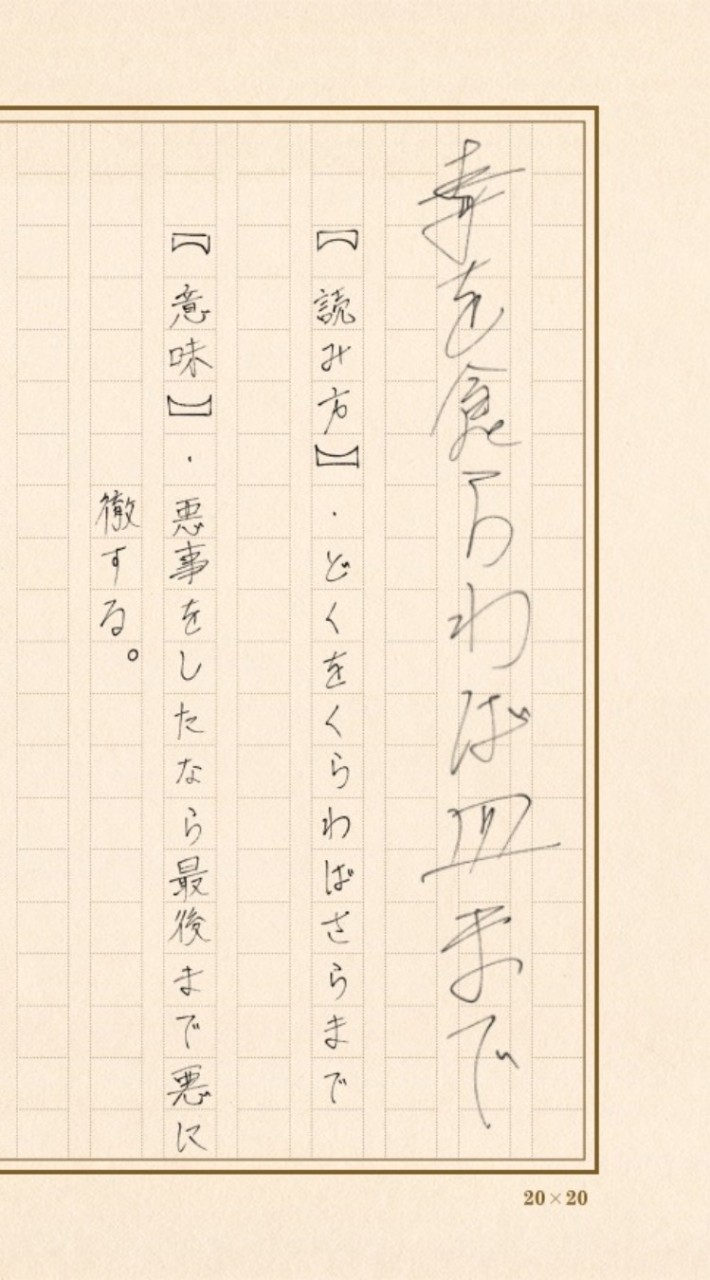 毒を食らわば皿まで
【読み方】・どくをくらわばさらまで
【意味】・悪事をしたなら最後まで悪に
徹する。
20×20